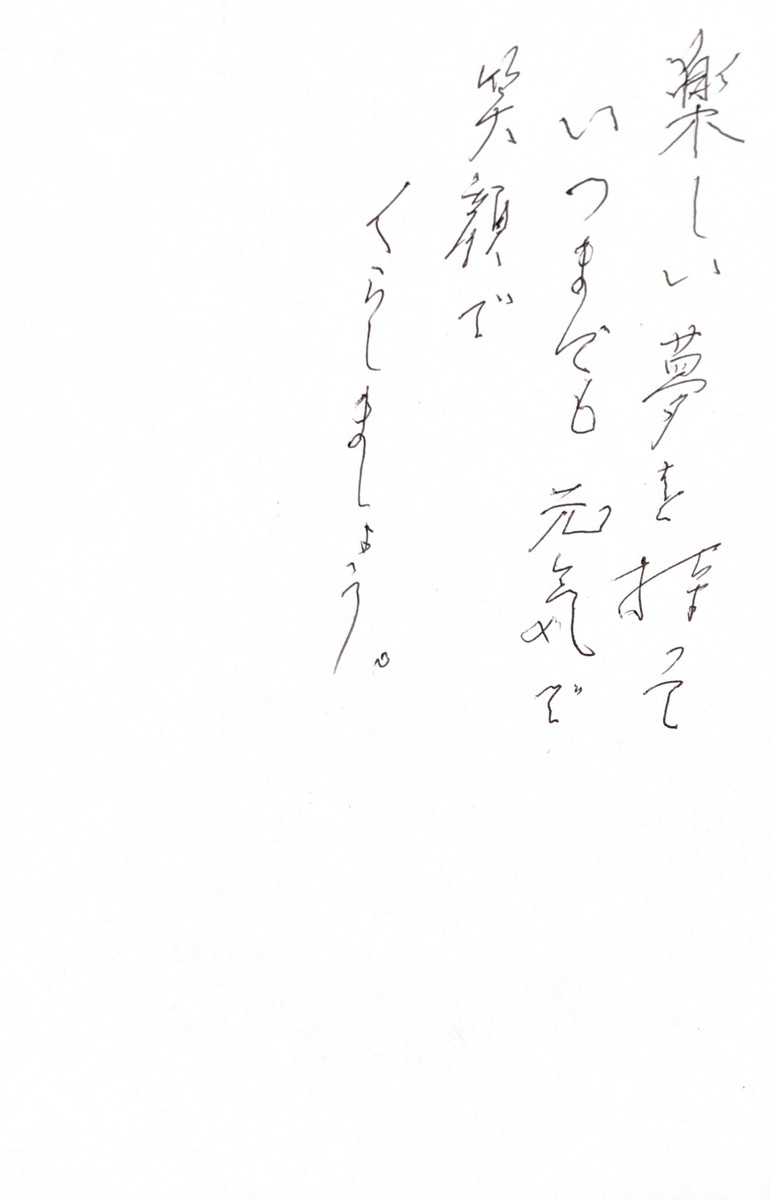 楽しい夢を持って
いつまでも元気で
笑顔で
くらしましょう。